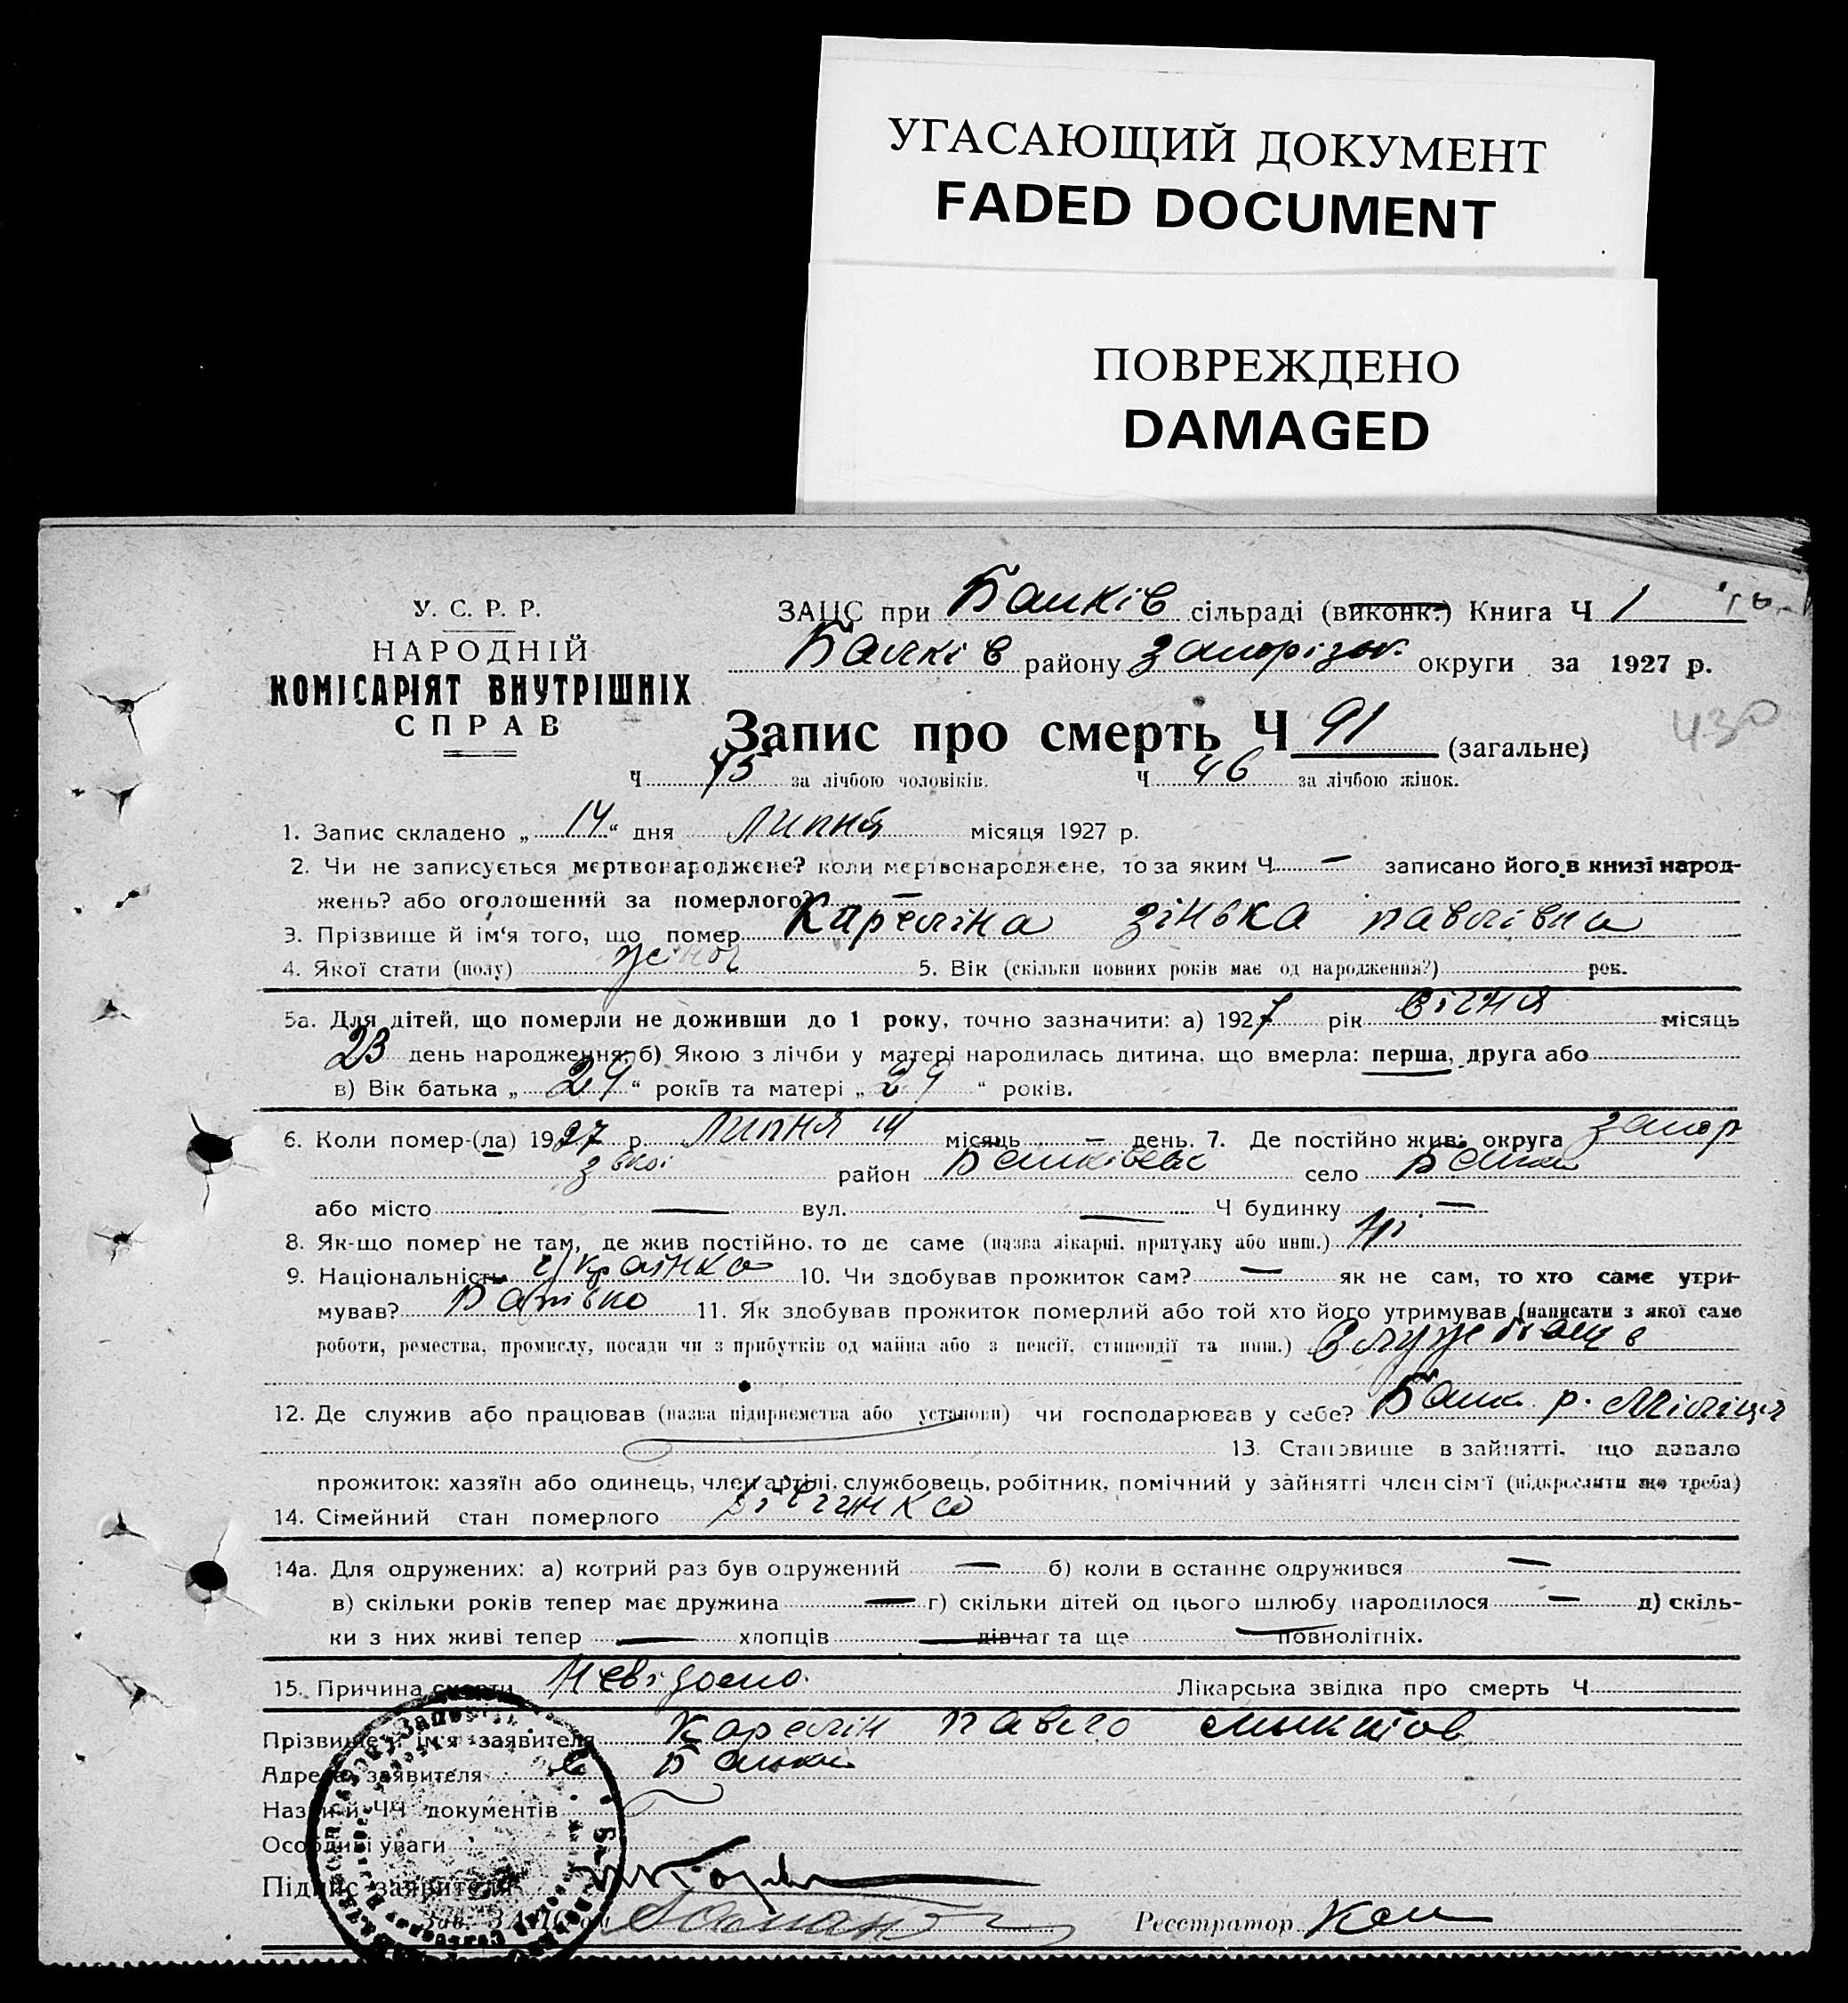 УГАСАЮЩИЙ ДОКУМЕНТ
FADED DOCUMENT
ПОВРЕЖДЕНО
DAMAGED
У. С. Р. Р.
НАРОДНІЙ
КОМІСАРІЯТ ВНУТРІШНІХ
СПРАВ
ЗАЦС при Балків сільраді (виконк.) Книга Ч 1
Балків району Запорізьк. округи за 1927 р.
Запис про смерть Ч 91 (загальне)
430
Ч 45 за лічбою чоловіків. Ч 46 за лічбою жінок.
1. Запис складено „ 14 “ дня Липня місяця 1927 р.
2. Чи не записується мертвонароджене? коли мертвонароджене, то за яким Ч — записано його в книзі народ-
жень? або оголошений за померлого? —
3. Прізвище й ім'я того, що помер Кареліна Зінька Павлівна
4. Якої стати (полу) жіноч 5. Вік (скільки повних років має од народження?) рок.
5а. Для дітей, що померли не доживши до 1 року, точно зазначити: а) 1927 рік Січня місяць
23 день народження; б) Якою з лічби у матері народилась дитина, що вмерла: перша, друга або
в) Вік батька „ 29 “ років та матері „ 29 “ років.
6. Коли помер-(ла) 1927 р. Липня 14 місяць — день. 7. Де постійно жив: округа Запор
зької район Балківськ село Балки
або місто — вул. — Ч будинку —
8. Як-що помер не там, де жив постійно, то де саме (назва лікарні, притулку або инш.)
9. Національність Українка 10. Чи здобував прожиток сам? — як не сам, то хто саме утри-
мував? Батько 11. Як здобував прожиток померлий або той хто його утримував (написати з якої саме
роботи, ремества, промислу, посади чи з прибутків од майна або з пенсії, стипендії та инш.)
12. Де служив або працював (назва підприємства або установи) чи господарював у себе? Балк. р. Міліція
13. Становище в зайнятті, що давало
прожиток: хазяїн або одинець, член артілі, службовець, робітник, помічний у зайнятті член сім'ї (підкреслити що треба)
14. Сімейний стан померлого
14а. Для одружених: а) котрий раз був одружений — б) коли в останнє одружився —
в) скільки років тепер має дружина — г) скільки дітей од цього шлюбу народилося — д) скіль-
ки з них живі тепер — хлопців — дівчат та ще — повнолітніх.
15. Причина смерти Невідомо. Лікарська звідка про смерть Ч
Прізвище й ім'я заявителя Карелін Павло Микитов
Адреса заявителя с Балки
Назви й ЧЧ документів
Особливі уваги
Підпис заявителя
Зав. ЗАЦСом Реєстратор